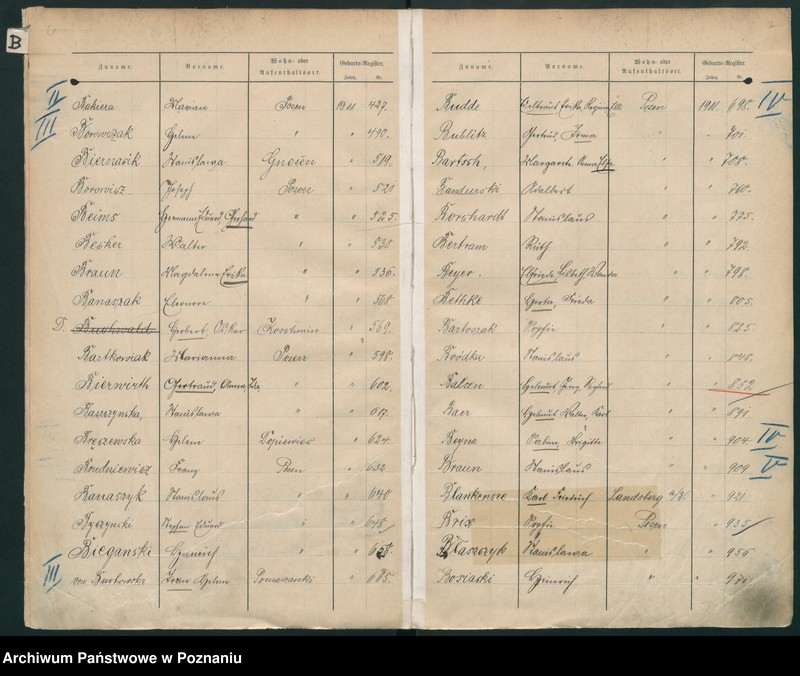 B
Zuname. Vorname. Wohn- oder Aufenthaltsort. Geburts-Register. Jahrg. Nr.
II
Bakiera Marian Posen 1911 427.
III
Borowczak Helene " " 490.
Biernasik Stanislawa Gnesen " 519.
Borowicz Joseph Posen " 521
Beims Hermann Eduard Gerhard " " 525.
Becker Walter " " 530
Braun Magdalene Erika " " 536.
Banaszak Eleonore " " 568
D. Buchwald Herbert, Oskar Koschmin " 569.
Bartkowiak Marianna Posen " 598.
Bierwirth Gertraud, " " 602.
Baszczynska, Stanislawa " " 617.
Brzeszewska Helene Dopiewiec " 624.
Brudniewicz Franz Posen " 632
Banaszyk Stanislaus " " 640
Byczynski Stephan Eduard " " 648
Bieganski Heinrich " "
III
von Helene Pomarzanki " 675.
Zuname. Vorname. Wohn- oder Aufenthaltsort. Geburts-Register. Jahrg. Nr.
Budde Erika, Posen 1911. 698.
IV
Bublitz Gertrud, Irma " " 701.
Bartsch, Margarete " " 708.
Bandurski Adalbert " " 760.
Borchardt Stanislaus " " 775.
Bertram Ruth " " 792.
Beyer. Elfriede, " " 798.
Bethke Herta, Frieda " " 805.
Bartoszak Sophie " " 825
Bródka Stanislaus " " 848.
Balzen Helmut, " " 852
Baer Helmut Walter, Karl " " 891
Beyna Brigitte " " 904
IV
Braun Stanislaus " " 909
V
Blankensee Karl Friedrich Landsberg a/W. " 921
Brix Sophie Posen " 935
Błaszczyk Stanislawa " " 956
Bosiacki Heinrich " " 971
Archiwum Państwowe w Poznaniu